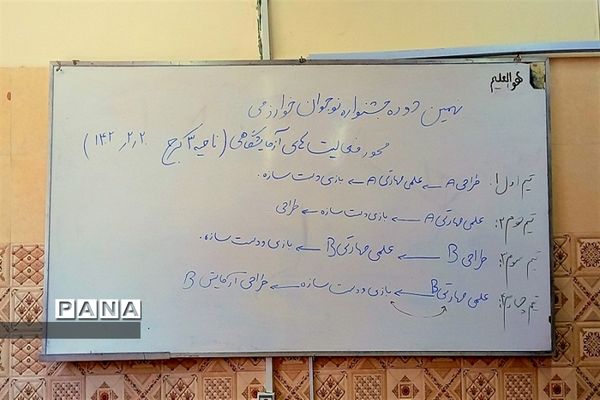 هوالعلیم
نهمین دوره جشنواره نوجوان خوارزمی
محور فعالیت های آزمایشگاهی (ناحیه ۳ کرج ۱۴۰۲٫۲٫۲۰)
تیم اول ۱: طراحی A ← علمی مهارتی A ← بازی و دست سازه.
تیم دوم ۲: علمی مهارتی A ← بازی و دست سازه ← طراحی
تیم سوم ۳: طراحی B ← علمی مهارتی B ← بازی و دست سازه.
تیم چهارم ۴: علمی مهارتی B ← بازی و دست سازه ← طراحی آزمایش B
PANA